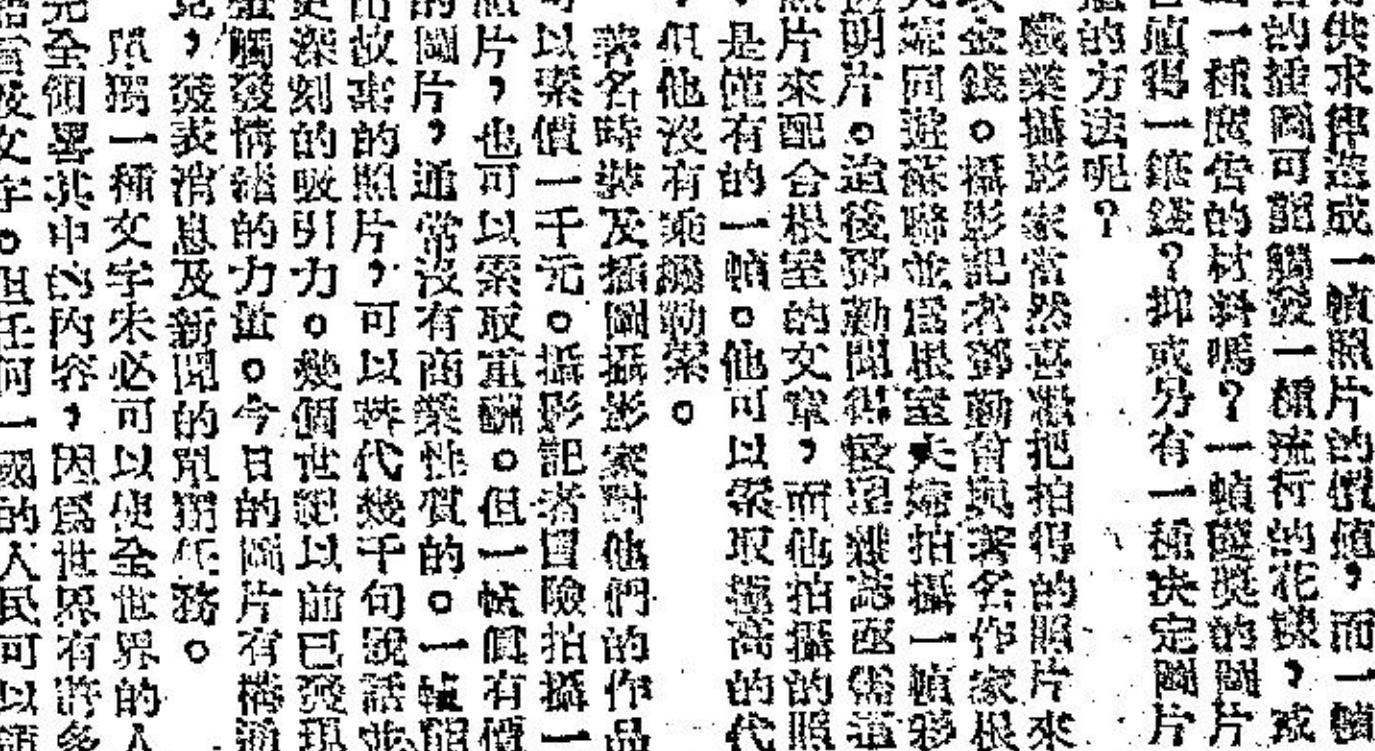 供求律造成一幀照片的價值，而一幀
的插圖可能觸發一種流行的花樣，或
一種廣告的材料嗎？一幀獲獎的圖片
值得一筆錢？抑或另有一種決定圖片
的方法呢？
職業攝影家當然喜歡把拍得的照片來
金錢。攝影記者鄧勤曾與著名作家根
同遊蘇聯並爲根室夫婦拍攝一幀彩
明片。追後鄧勤聞得發星雜誌亟需這
片來配合根室的文章，而他拍攝的照
是僅有的一幀。他可以索取極高的代
但他沒有乘機勒索。
著名時裝及插圖攝影家對他們的作品
以索價一千元。攝影記者冒險拍攝一
片，也可以索取重酬。但一幀眞有價
的圖片，通常沒有商業性質的。一幀能
故事的照片，可以替代幾千句說話並
更深刻的吸引力。幾個世紀以前已發現
觸發情緒的力量。今日的圖片有溝通
，發表消息及新聞的單獨任務。
單獨一種文字未必可以使全世界的人
完全領畧其中的內容，因爲世界有許多
文字。但任何一國的人民可以